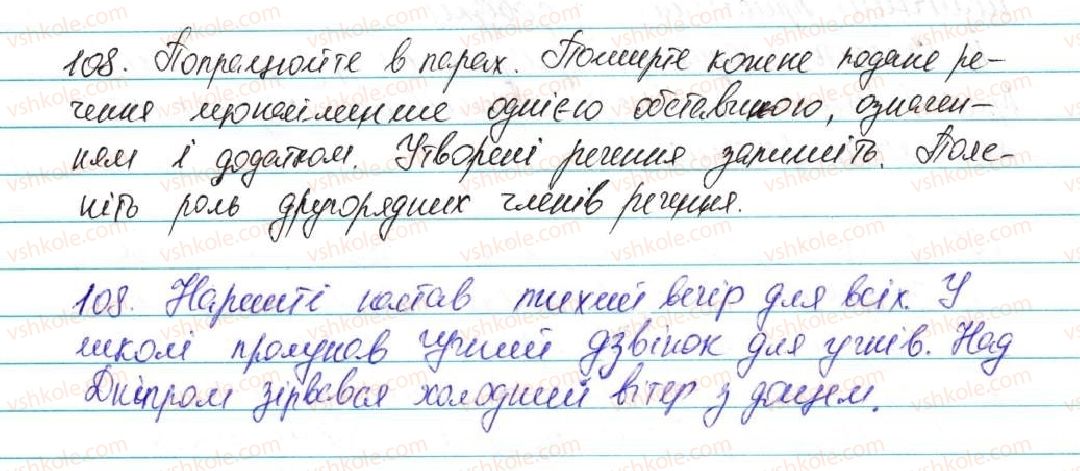 108. Попрацюйте в парах. Поширте кожне подане ре-
чення щонайменше однією обставиною, означен-
ням і додатком. Утворені речення запишіть. Пояс-
ніть роль другорядних членів речення.
108. Нарешті настав тихий вечір для всіх. У
школі пролунав гучний дзвінок для учнів. Над
Дніпром зірвався холодний вітер з дощем.